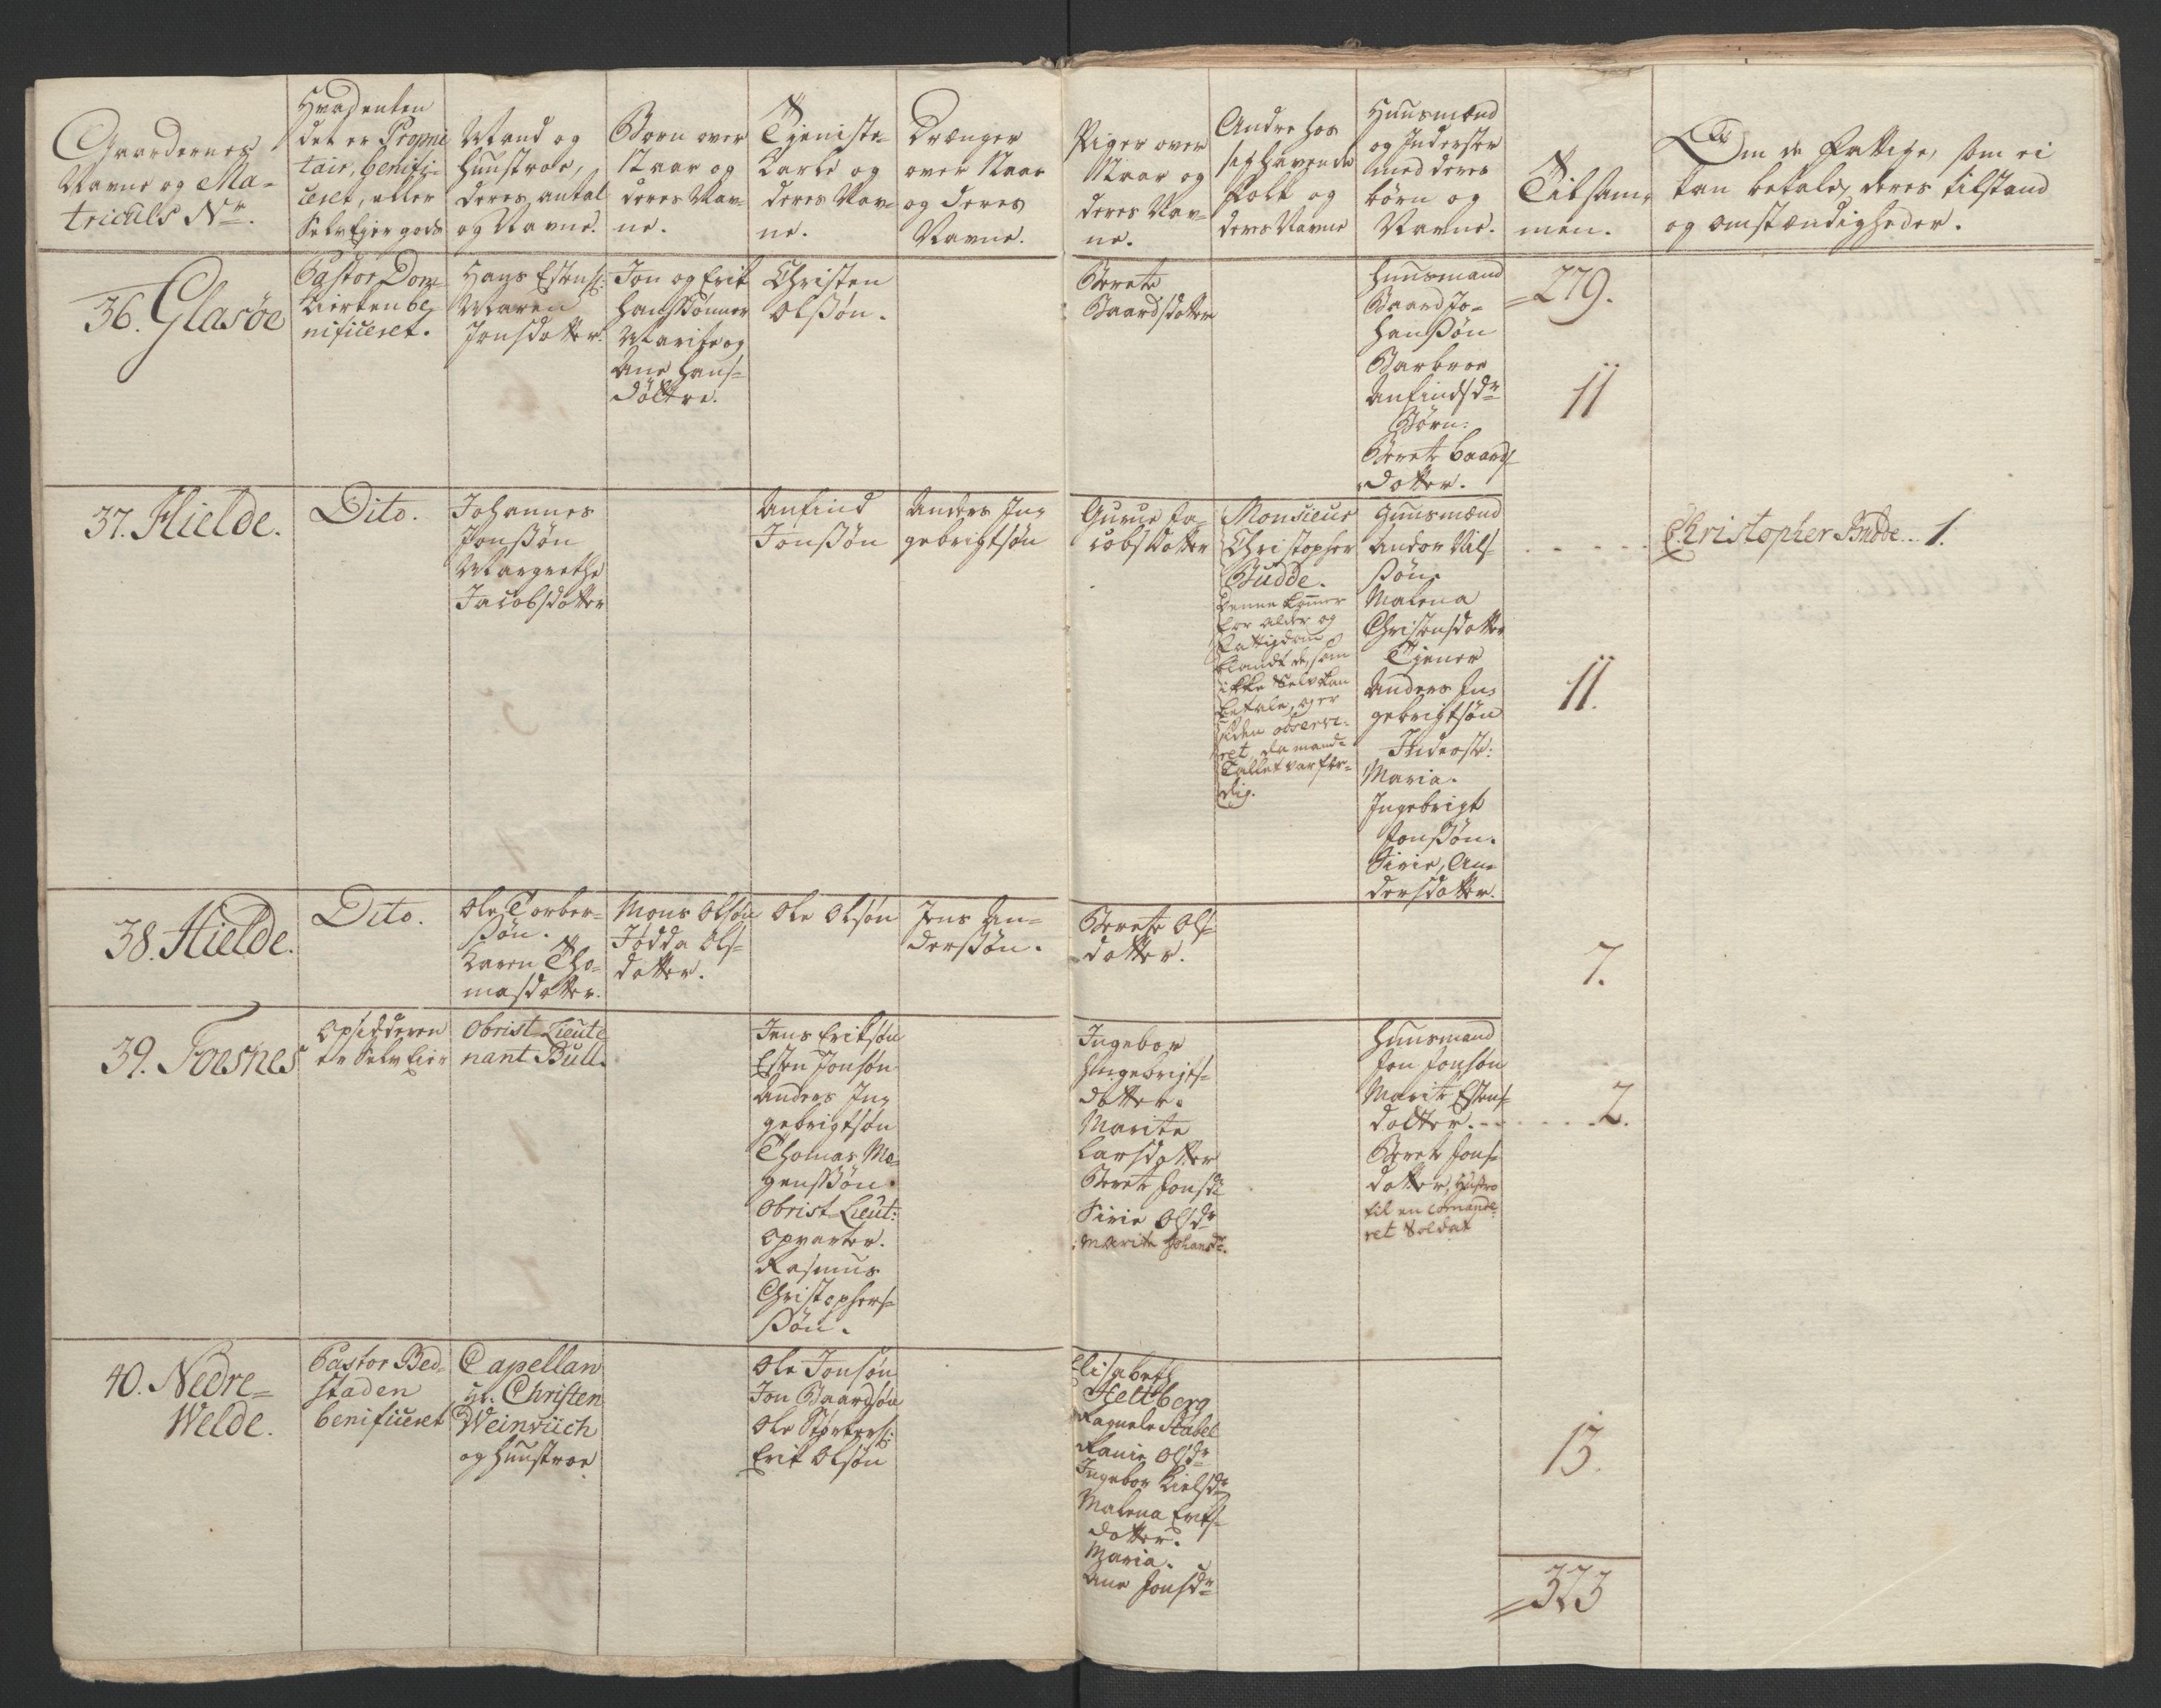 Gaardernes
Navne og Ma-
triculs Nr.
Hvadenten
det er Proprie
tair, benifi-
ceret, eller
SelvEjergods
Mand og
Huustroe,
deres antal
og Navne.
Børn over
12 aar og
deres Nav-
ne.
Tjeniste-
Karle og
deres Nav-
ne.
Drænger
over 12 aar
og deres
Navne.
Piger over
12 aar og
deres Nav-
ne.
Andre hos
sig havende
Folk og
deres Navne
Huusmænd
og Inderster
med deres
børn og
Navne.
Tilsam-
men.
Om de Fattige, som ei
kan betale, deres tilstand
og omstændigheder.
36. Glasøe
Pastor Dom
Kierken be
nificeret.
Hans Estens:
Maren
Jonsdotter.
Jon og Erik
Hanssønner
Marite og
Ane Hans-
døttre.
Christen
Olssøn.
Berete
Baardsdotter
Huusmand
Baard Jo-
hanssøn
Barbroe
Anfindsdr
Børn:
Beret Baards-
dotter.
279.
11
37. Hielde.
Dito.
Johannes
Jonssøn
Margrethe
Jacobsdotter
Anfind
Jonssøn
Anders In-
gebrigtsøn
Gurue Ja-
cobsdotter
Monsieur
Christopher
Budde.
denne kommer
for alder og
Fattigdom
blandt de, som
ikke Selv kan
betale, og er
siden observe-
ret, da mand-
Tallet var fær-
dig.
Huusmænd
Andor Nils-
søn.
Malena
Christensdotter
Tjener
Anders In-
gebrigtsøn
Inderste:
Maria.
Ingebrigt
Jonssøn.
Sirie, An-
dersdotter.
11.
Christopher Budde... 1.
38. Hielde.
Dito.
Ole Torber-
søn.
Karen Tho-
masdotter.
Mons Olsøn
Jødda Ols-
dotter.
Ole Olsøn
Jens An-
derssøn.
Berete Ols-
dotter.
7.
39. Foesnes
Opsidderen
er Selv Eier
Obrist Lieute
nant Bull.
Jens Eriksøn
Esten Jonsøn
Anders In-
gebrigtsøn
Thomas Mo-
genssøn.
Obrist Lieut:
Opvarter.
Rasmus
Christophers-
søn.
Ingebor
Hngebrigts-
dotter.
Marite
Larsdotter
Berete Jonsd.
Sirie Olsdr
Marite Johansdr.
Huusmand
Jon Jonsøn
Marite Estens-
dotter.
Beret Jons-
dotter, Hustro
til en comande-
ret Soldat
2.
40. Nedre=
Welde.
Pastor Bed-
staden
benificeret
Capellan
Hr. Christen
Weinrüch
og Huustroe
Ole Jonsøn
Jon Baardsøn
Ole Størkers:
Erik Olsøn
Elisabeth
Heltberg
Ragnele Stabel
Ranie Olsdr
Ingebor Kielsdr
Malena Eriks-
dotter.
Maria.
Ane Jonsdr
13.
323